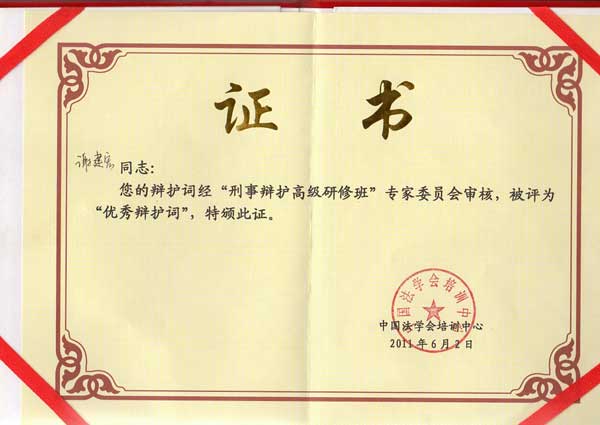 证 书
谢建宏 同志:
您的辩护词经“刑事辩护高级研修班”专家委员会审核,被评为
“优秀辩护词”,特颁此证。
中国法学会培训中心
中国法学会培训中心
2011年6月2日